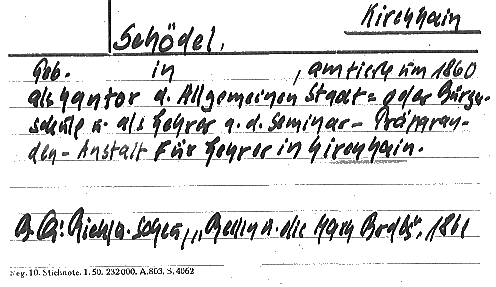 Kirchhain
Schödel.
Geb. in , amtierte um 1860
als Kantor d. Allgemeinen Stadt= oder Bürger-
schule u. als Lehrer a. d. Seminar- Präparan-
den-Anstalt für Lehrer in Kirchhain.
"Berlin u. die Mark Brdbg", 1861
Neg. 10. Stichnote. 1. 50. 232000. A.803. S. 4062